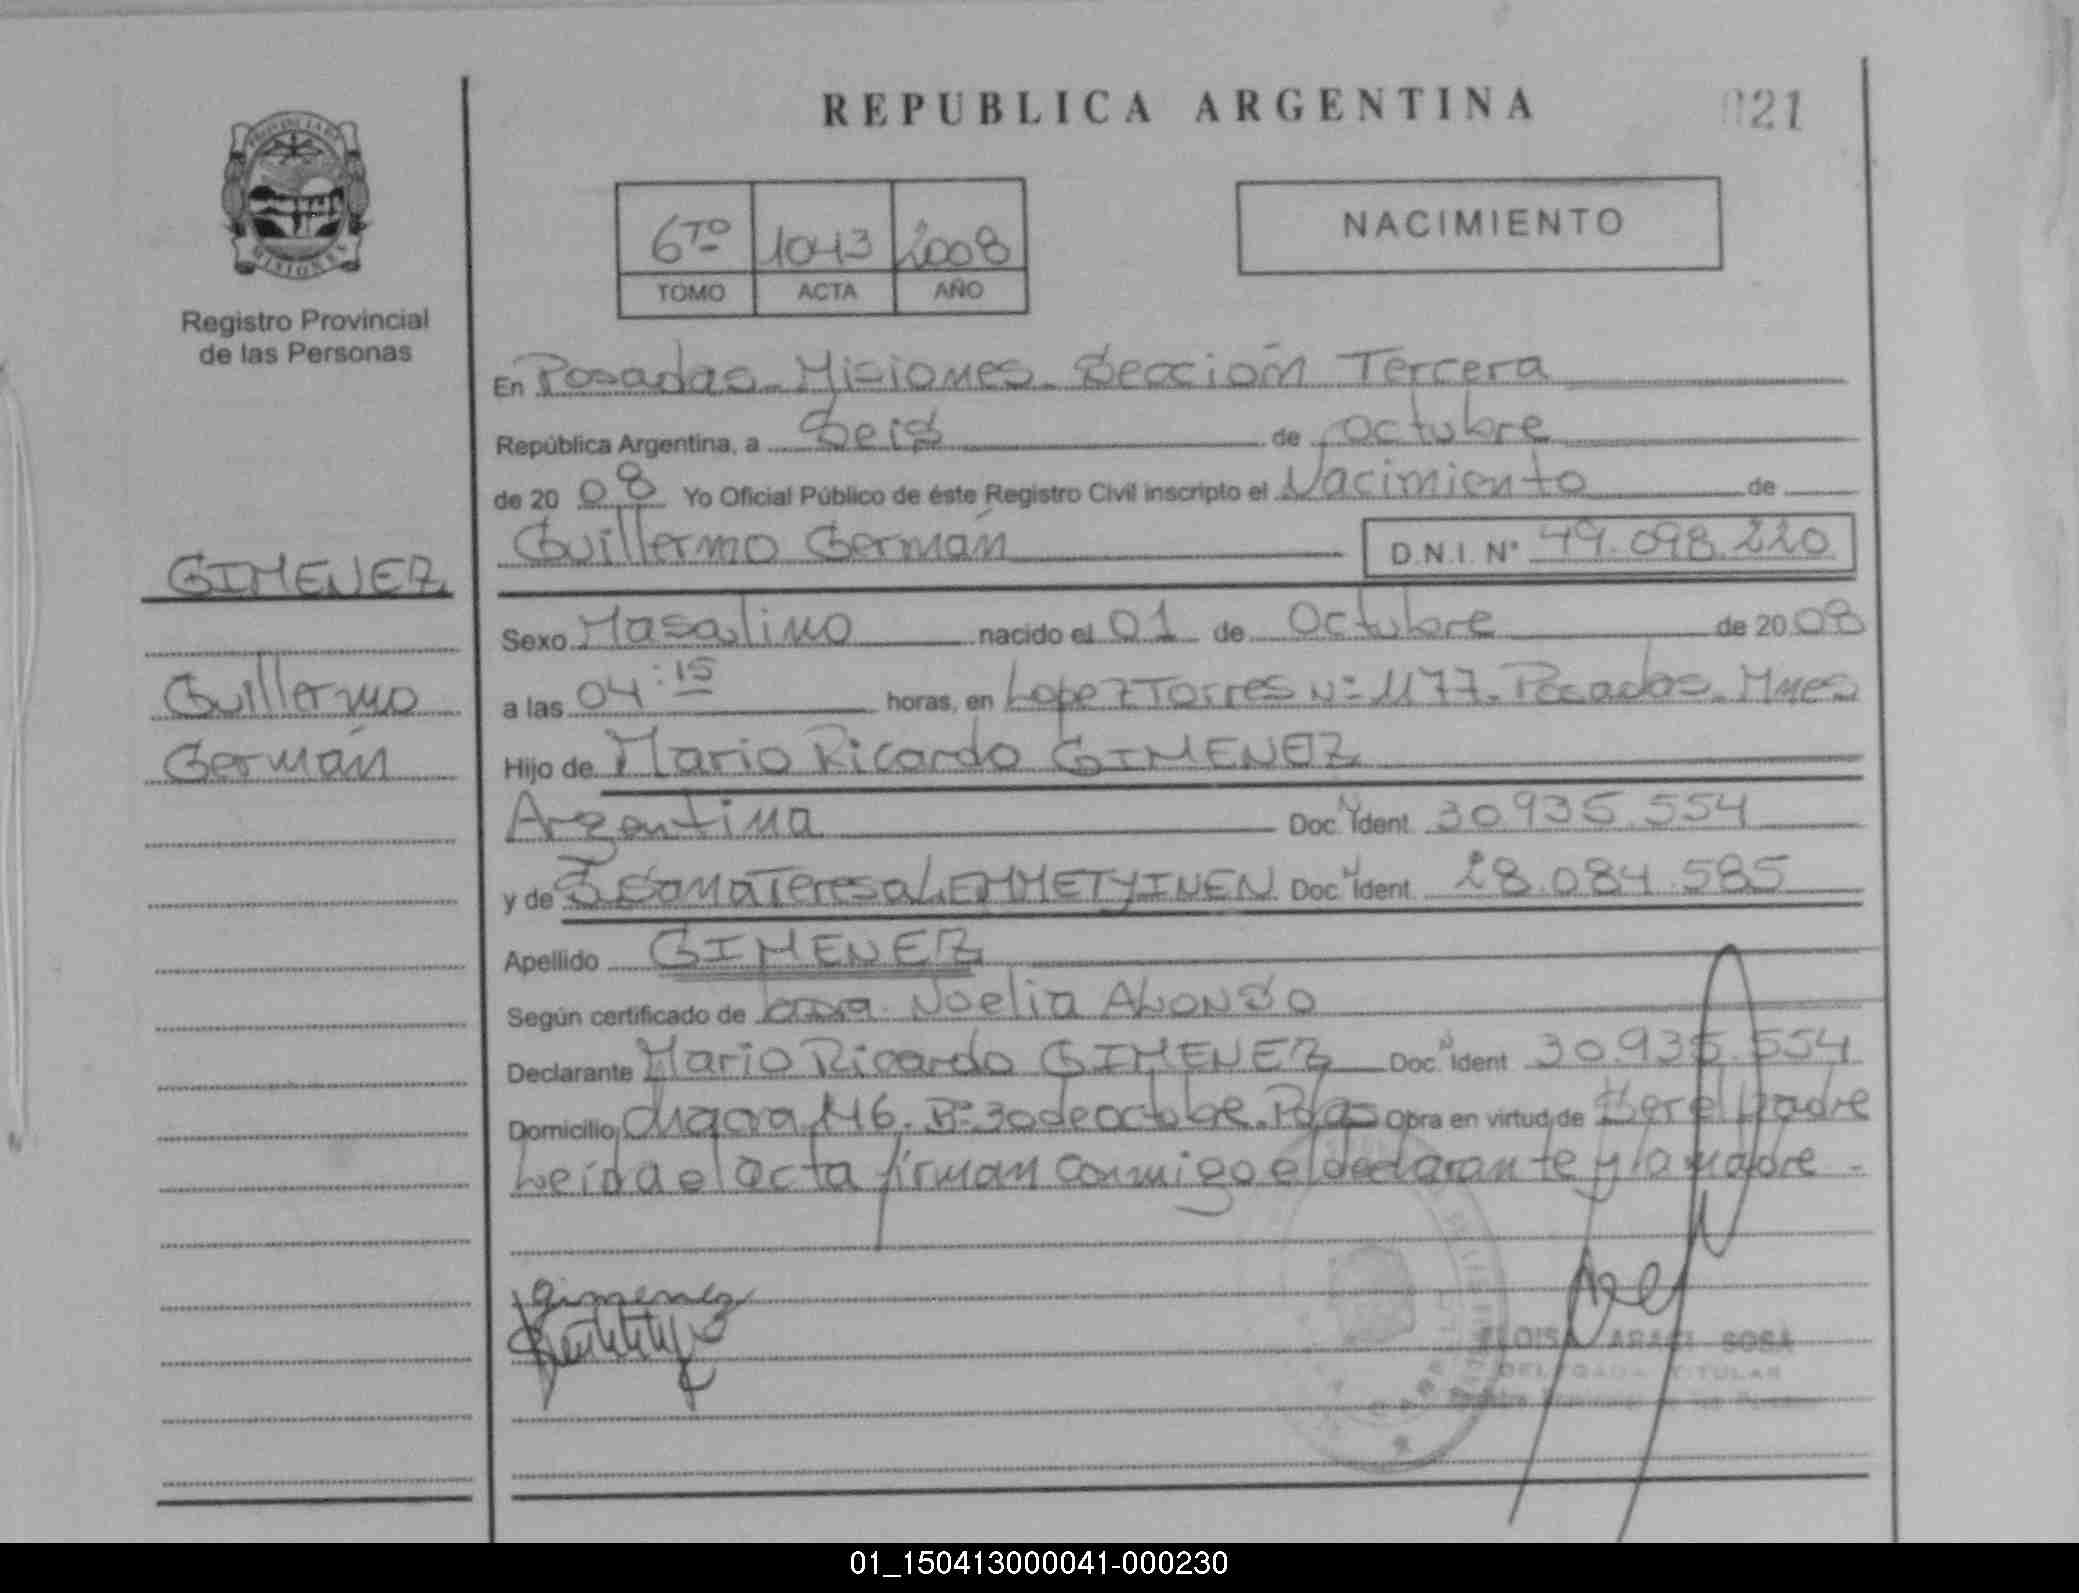 REPUBLICA ARGENTINA
021
PROVINCIA DE
MISIONES
Registro Provincial
de las Personas
6TO 1043 2008
TOMO ACTA AÑO
NACIMIENTO
En Posadas - Misiones - Sección Tercera
República Argentina, a Seis de octubre
de 20 08 Yo Oficial Público de éste Registro Civil inscripto el Nacimiento de
Guillermo Germán D.N.I. Nº 49.098.220
GIMENEZ
Guillermo
Germán
Sexo Masculino nacido el 01 de Octubre de 20 08
a las 04:15 horas, en Lopez Torres Nº 1177 - Posadas - Mnes
Hijo de Mario Ricardo GIMENEZ
Argentina Doc. N Ident. 30.935.554
y de Teresa Doc. N Ident. 28.084.585
Apellido GIMENEZ
Según certificado de Noelia ALONSO
Declarante Mario Ricardo GIMENEZ Doc. N Ident. 30.935.554
Domicilio chacra 146. Bº 30 de octubre. Pdas Obra en virtud de Ser el padre
Leída el acta firman conmigo el declarante y la madre -
Gimenez
ELOISA ARACI SOSA
DELEGADA TITULAR
01_150413000041-000230